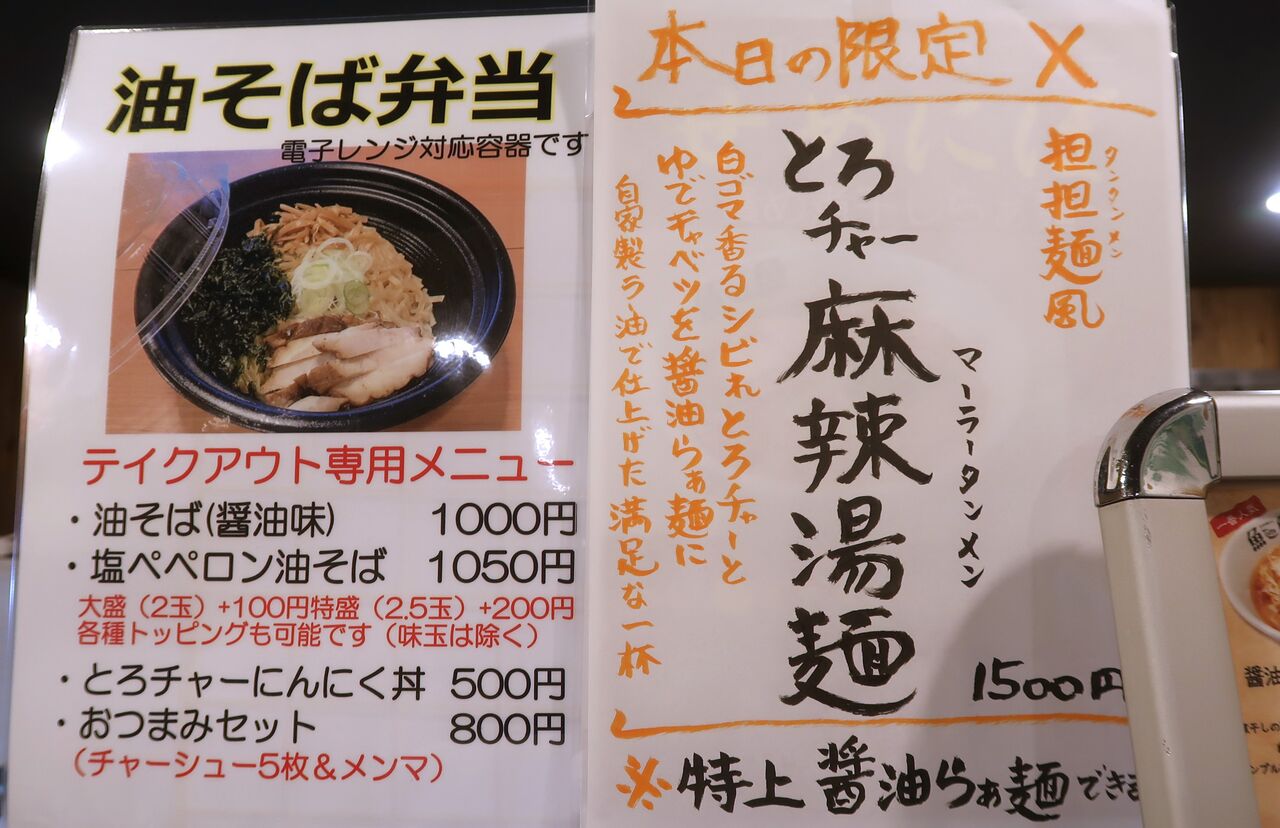 油そば弁当
電子レンジ対応容器です
テイクアウト専用メニュー
・油そば(醤油味) 1000円
・塩ペペロン油そば 1050円
大盛（2玉）+100円特盛（2.5玉）+200円
各種トッピングも可能です（味玉は除く）
・とろチャーにんにく丼 500円
・おつまみセット 800円
（チャーシュー5枚＆メンマ）
本日の限定
担担麺風
タンタンメン
とろチャー麻辣湯麺
マーラータンメン
白ゴマ香るシビれとろチャーと
ゆでキャベツを醤油らぁ麺に
自家製ラー油で仕上げた満足な一杯
1500円
※特上醤油らぁ麺できま
醤油